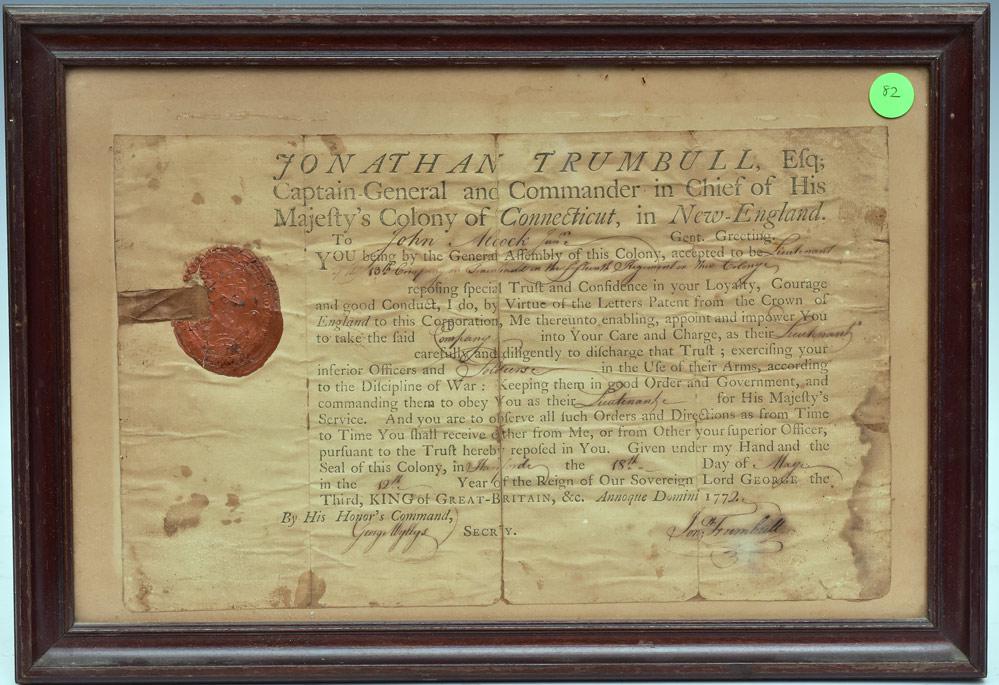 82
JONATHAN TRUMBULL, Eſq;
Captain-General and Commander in Chief of His
Majeſty's Colony of Connecticut, in New-England.
To John Alcock Junr Gent. Greeting.
YOU being by the General Aſſembly of this Colony, accepted to be Lieutenant
of the 13th Company or Trainband in the Regiment in this Colony
repoſing ſpecial Truſt and Confidence in your Loyalty, Courage
and good Conduct, I do, by Virtue of the Letters Patent from the Crown of
England to this Corporation, Me thereunto enabling, appoint and impower You
to take the ſaid Company into Your Care and Charge, as their Lieutenant
carefully and diligently to diſcharge that Truſt ; exerciſing your
inferior Officers and Soldiers in the Uſe of their Arms, according
to the Diſcipline of War : Keeping them in good Order and Government, and
commanding them to obey You as their Lieutenant for His Majeſty's
Service. And you are to obſerve all ſuch Orders and Directions as from Time
to Time You ſhall receive either from Me, or from Other your ſuperior Officer,
purſuant to the Truſt hereby repoſed in You. Given under my Hand and the
Seal of this Colony, in the 18th Day of May
in the 12th Year of the Reign of Our Sovereign Lord GEORGE the
Third, KING of GREAT-BRITAIN, &c. Annoque Domini 1772.
By His Honor's Command,
George Wyllys SECR'Y.
Jonth Trumbull